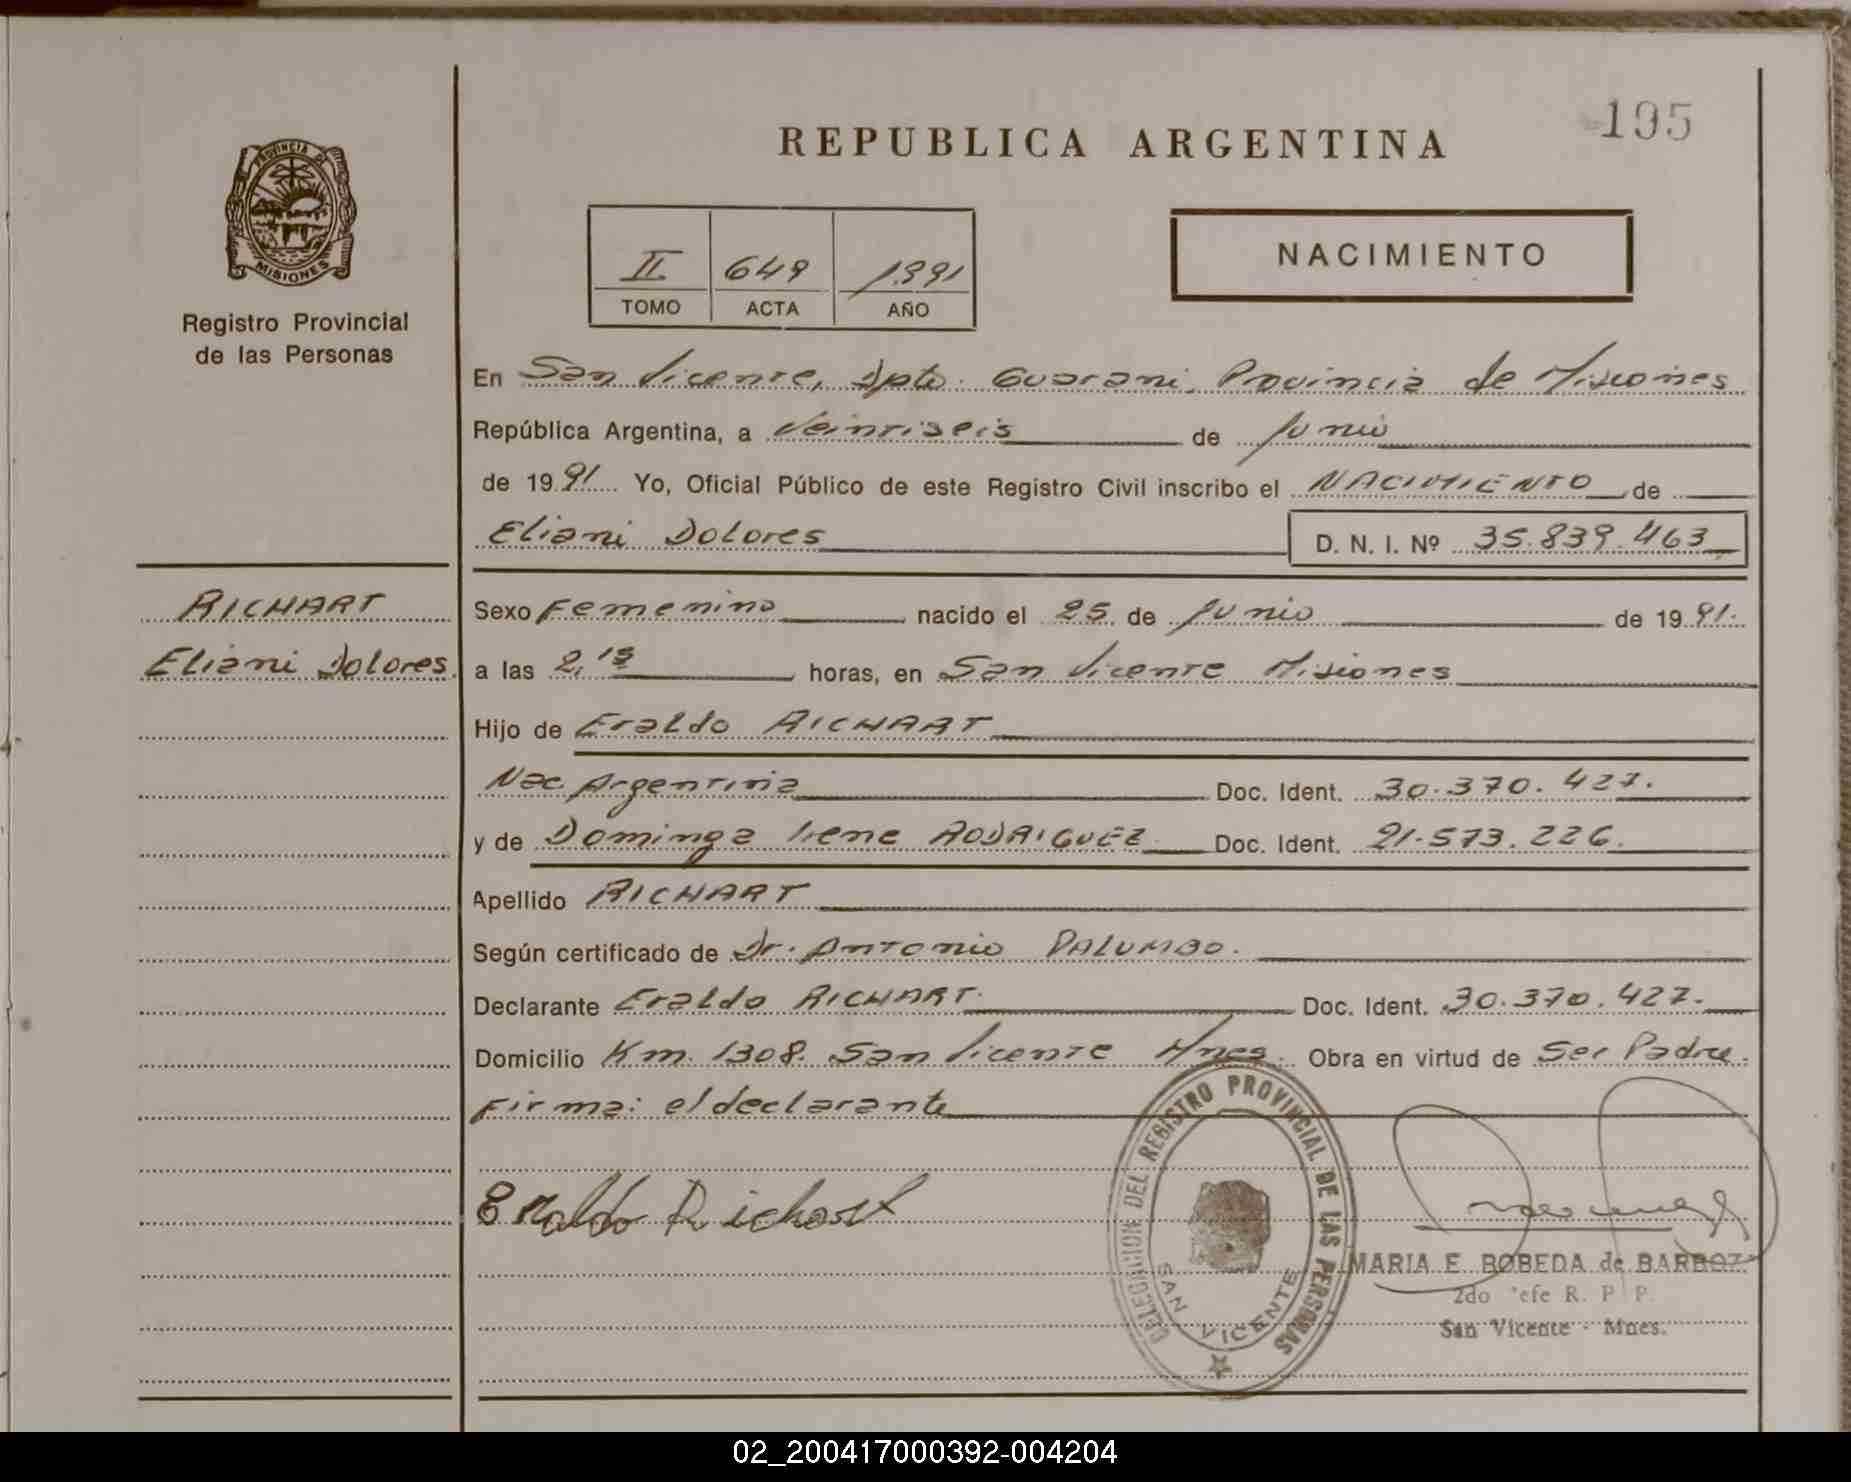 195
REPUBLICA ARGENTINA
PROVINCIA DE
MISIONES
Registro Provincial
de las Personas
II 649 1991
TOMO ACTA AÑO
NACIMIENTO
En San Vicente, Dpto. Guarani, Provincia de Misiones
República Argentina, a Veintiseis de Junio
de 1991 Yo, Oficial Público de este Registro Civil inscribo el NACIMIENTO de
Eliani Dolores D. N. I. Nº 35.839.463
RICHART
Eliani Dolores
Sexo Femenino nacido el 25 de Junio de 1991.
a las 2,15 horas, en San Vicente Misiones
Hijo de Eraldo RICHART
Nac Argentina Doc. Ident. 30.370.427.
y de Dominga Irene RODRIGUEZ Doc. Ident. 21.573.226.
Apellido RICHART
Según certificado de Dr. Antonio PALUMBO.
Declarante Eraldo RICHART. Doc. Ident. 30.370.427.
Domicilio Km. 1308. San Vicente Mnes. Obra en virtud de Ser Padre.
Firma: el declarante
Eraldo Richart
DELEGACION DEL REGISTRO PROVINCIAL DE LAS PERSONAS
SAN VICENTE
MARIA E. ROBEDA de BARBOZ
2do Jefe R. P. P.
San Vicente - Mnes.
02_200417000392-004204